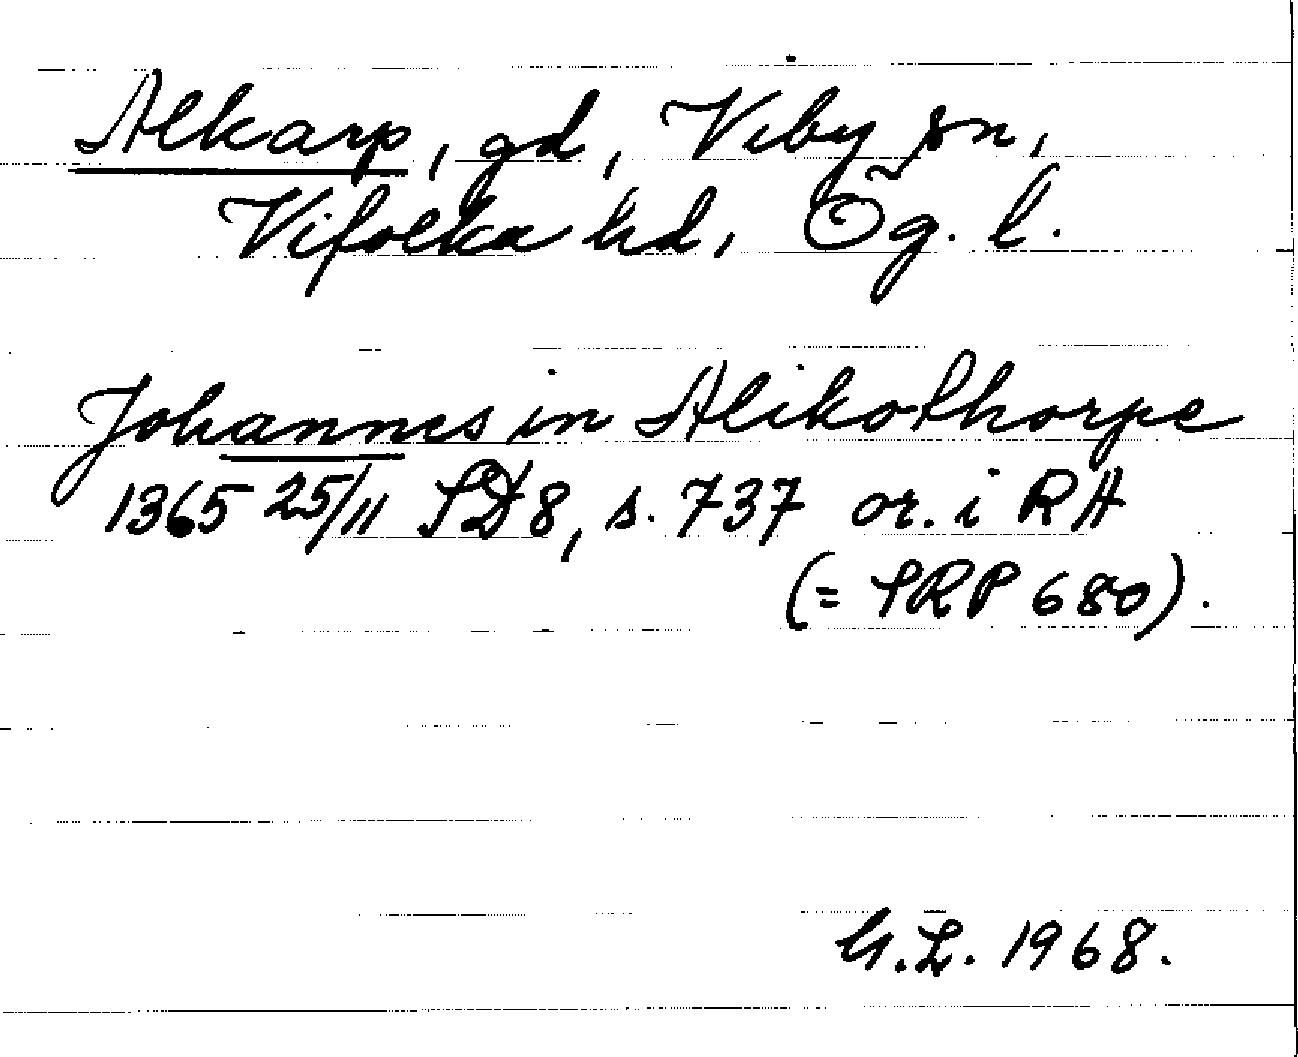 Alkarp, gd, Viby sn,
Vifolka hd, Ög. l.
Johannes in Alikothorpe
1365 25/11 SD 8, s. 737 or. i RA
(= SRP 680).
G.L. 1968.